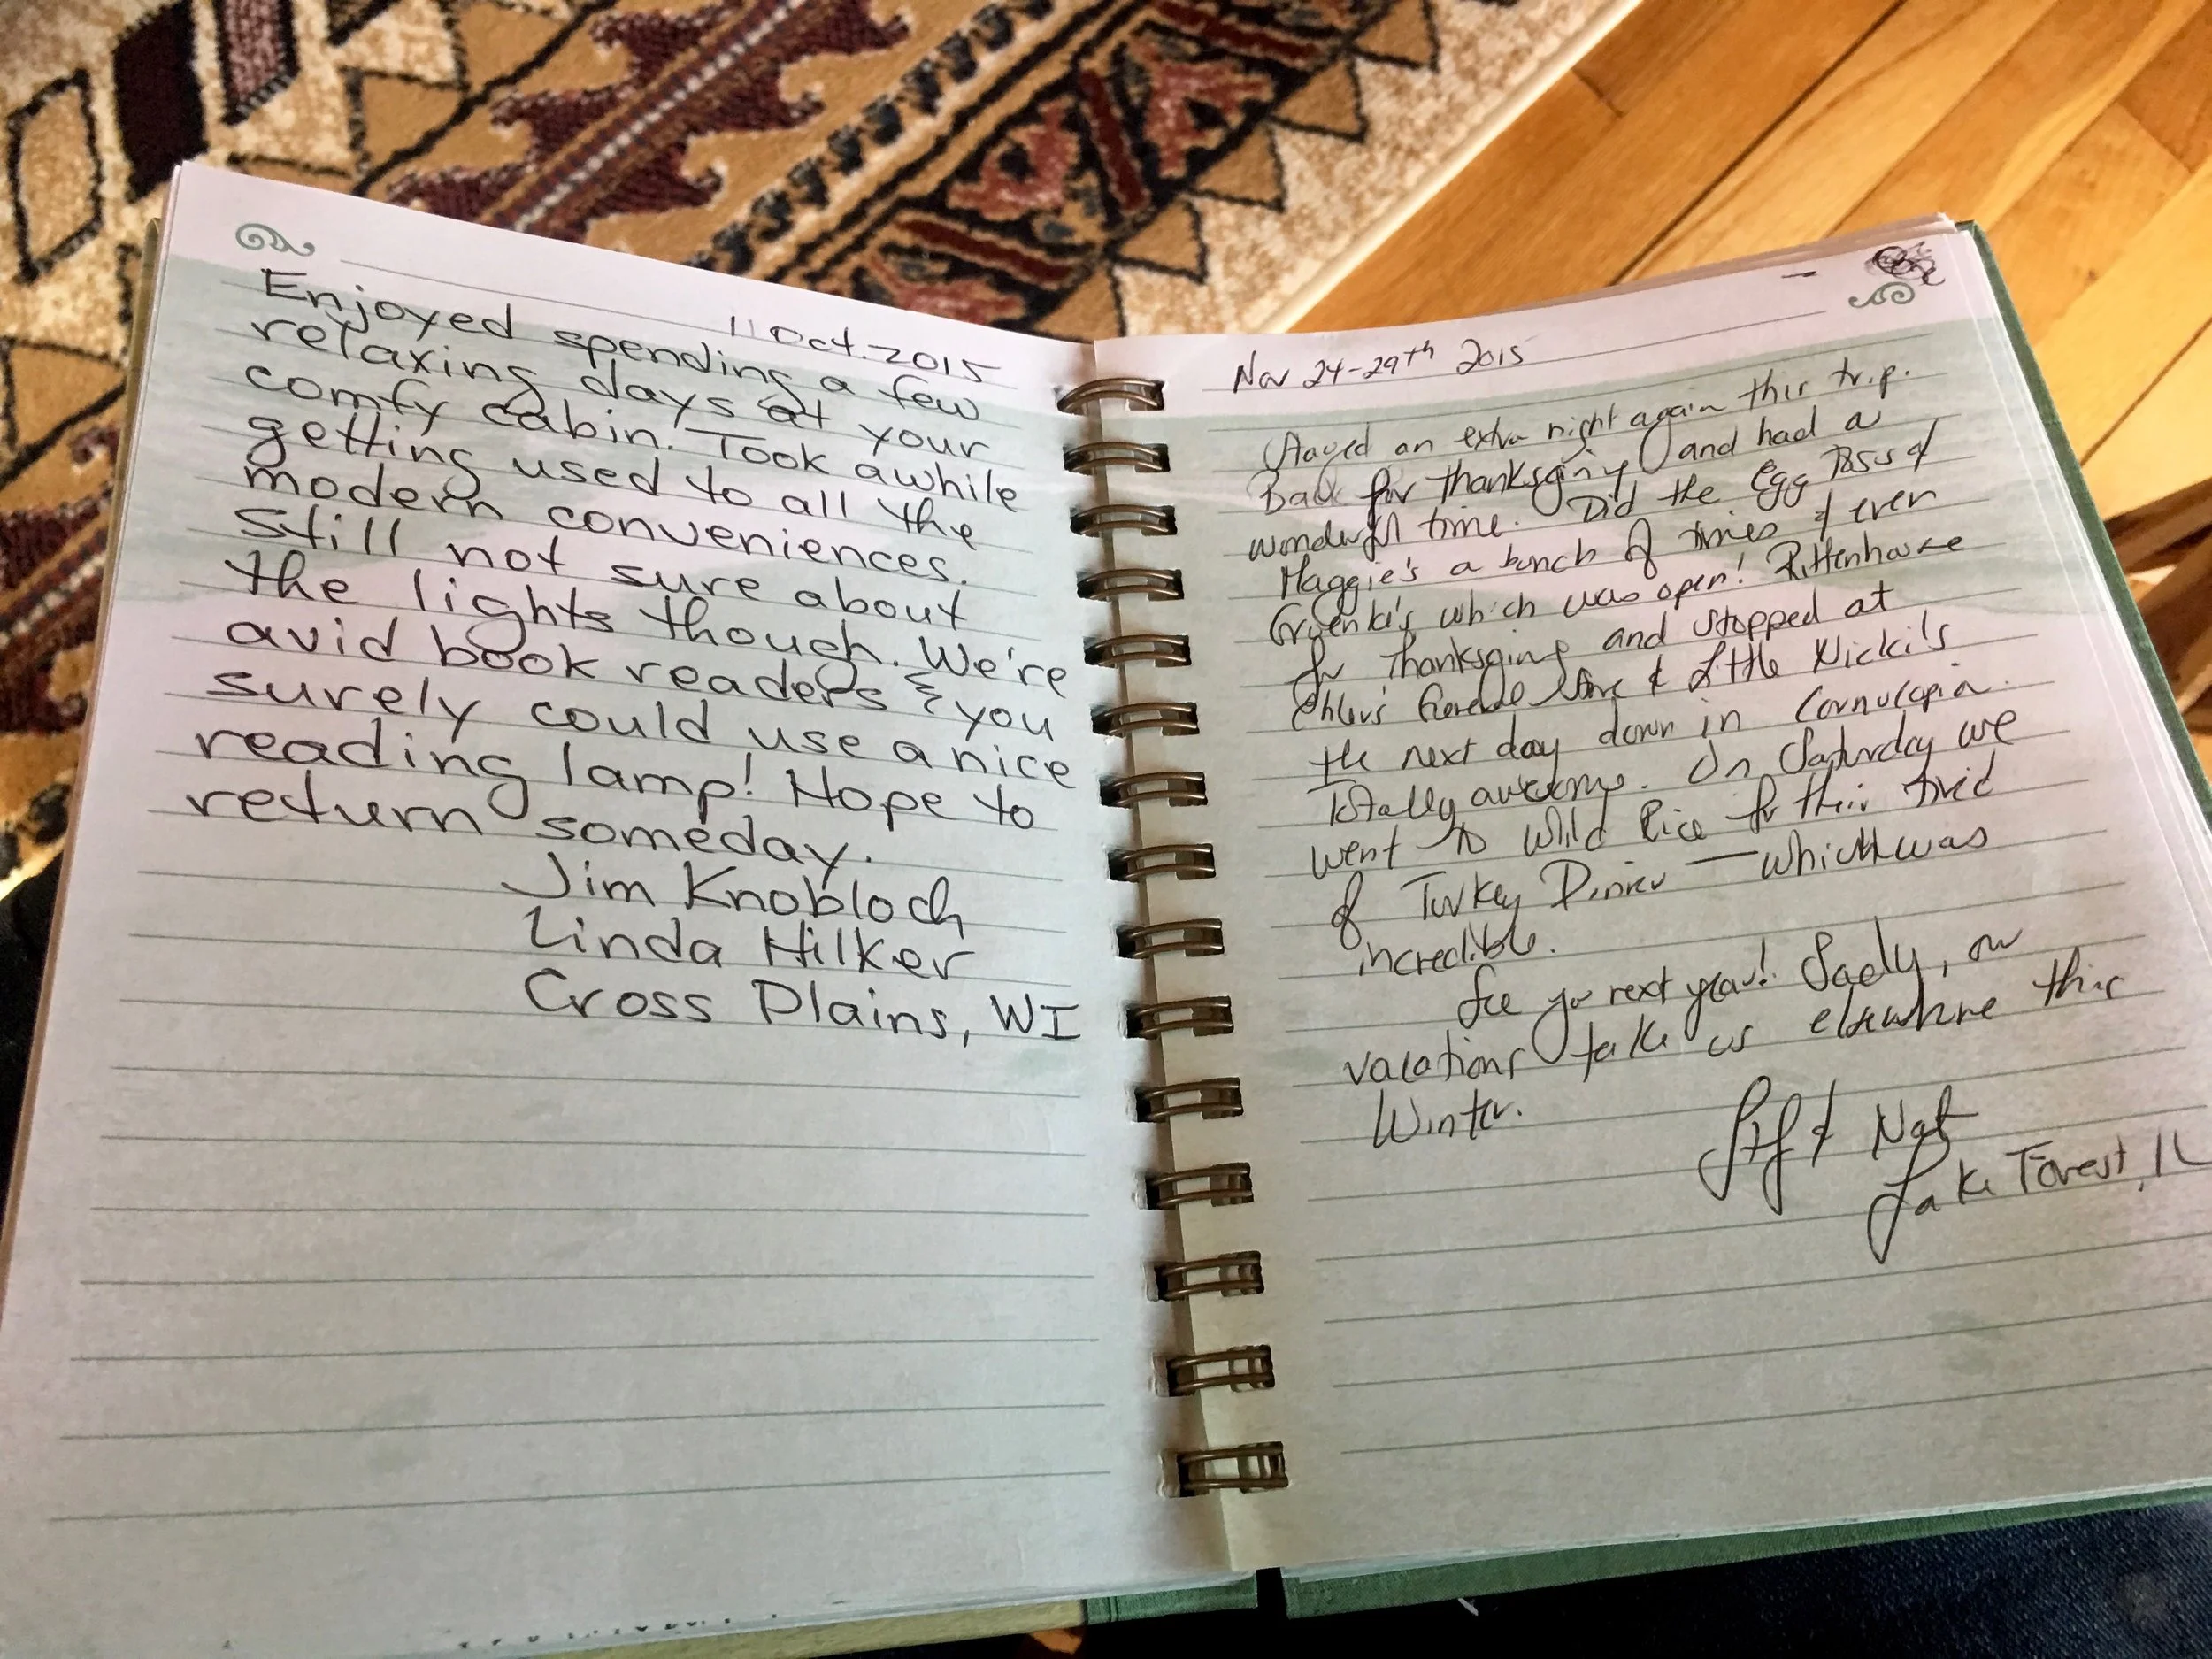 11 Oct. 2015
Enjoyed spending a few
relaxing days at your
comfy cabin. Took awhile
getting used to all the
modern conveniences.
Still not sure about
the lights though. We're
avid book readers & you
surely could use a nice
reading lamp! Hope to
return someday.
Jim Knobloch
Linda Hilker
Cross Plains, WI
Nov 24-29th 2015
Stayed an extra night again this trip.
Back for Thanksgiving and had a
wonderful time. Did the Egg Toss &
Maggie's a bunch of times & even
Gruenke's which was open! Rittenhouse
for Thanksgiving and stopped at
Ehlers General Store & Little Nicki's
the next day down in Cornucopia.
Totally awesome. On Saturday we
went to Wild Rice for their
of Turkey Dinner — which was
incredible.
See you next year! Sadly, our
vacations take us elsewhere this
Winter.
& Nat
Lake Forest, IL